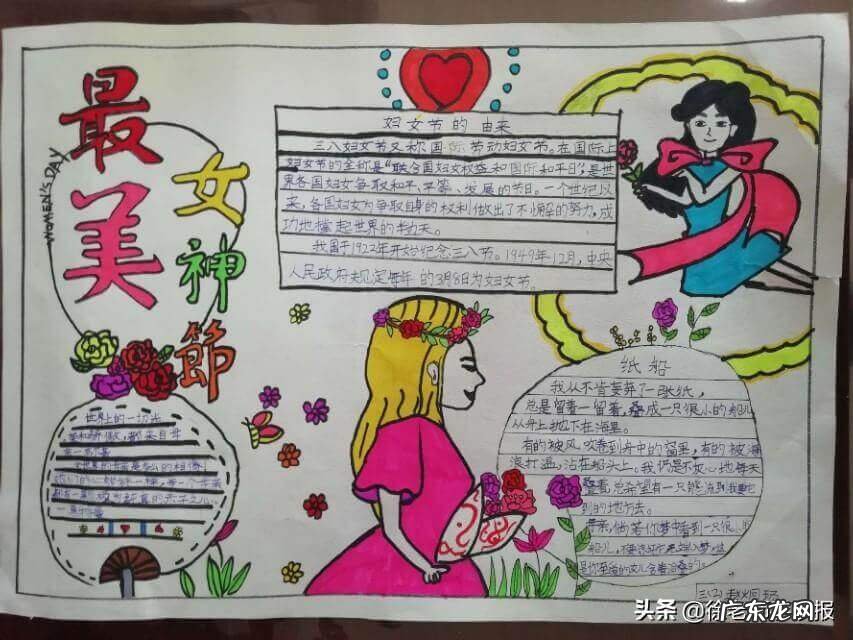 最美
女神節
WOMEN'S DAY
妇女节的由来
三八妇女节又称国际劳动妇女节。在国际上
妇女节的全称是“联合国妇女权益和国际和平日”,是世
界各国妇女争取和平、平等、发展的节日。一个世纪以
来,各国妇女为争取自身的权利做出了不懈的努力,成
功地撑起世界的半边天。
我国于1922年开始纪念三八节。1949年12月,中央
人民政府规定每年的3月8日为妇女节。
世界上的一切光
都来自母
纸船
我从不肯妄弃了一张纸,
总是留着—留着,叠成一只很小的船儿
从舟上抛下在海里。
有的被风吹卷到舟中的窗里,有的被海
浪打湿,沾在船头上。我仍是不灰心地每天
叠着,总希望有一只能流到我要它
到的地方去。
母亲,倘若你梦中看到一只很小
船儿,
头条@徐老
广东龙网报